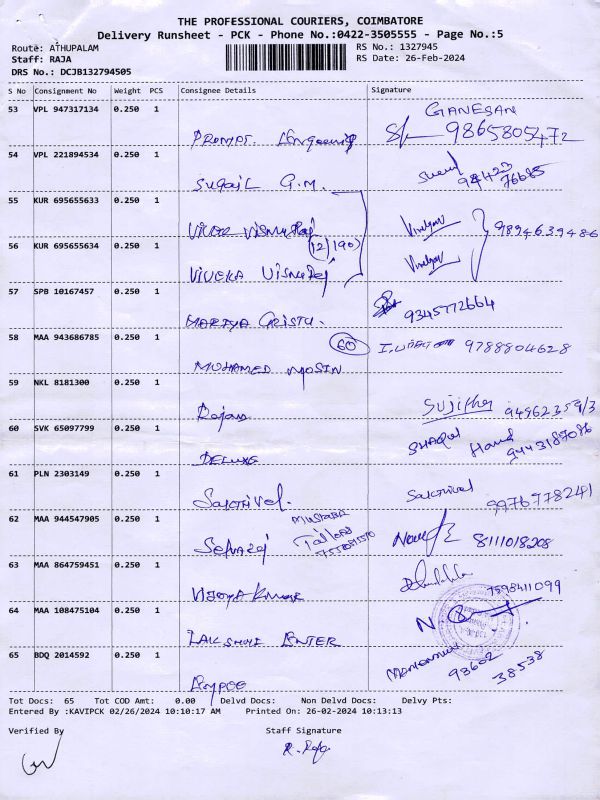 THE PROFESSIONAL COURIERS, COIMBATORE
Delivery Runsheet - PCK - Phone No.:0422-3505555 - Page No.:5
Route: ATHUPALAM RS No.: 1327945
Staff: RAJA RS Date: 26-Feb-2024
DRS No.: DCJB132794505
S No Consignment No Weight PCS Consignee Details Signature
53 VPL 947317134 0.250 1 GANESAN
9865805472
54 VPL 221894534 0.250 1
SUGAIL G.M. 94423
76685
55 KUR 695655633 0.250 1
9894639486
56 KUR 695655634 0.250 1 (12/190)
VIVEKA VISNU Raj
57 SPB 10167457 0.250 1
MARIYA CRISTU. 9345772664
58 MAA 943686785 0.250 1 60 9788804628
MOHAMED MOSIN
59 NKL 8181300 0.250 1
Rajan Sujitha
60 SVK 65097799 0.250 1
DELUXE 9443187086
61 PLN 2303149 0.250 1
SAKTHIVEL. Sakthivel 9976778241
62 MAA 944547905 0.250 1 Tailors
Selvaraj 8111018208
63 MAA 864759451 0.250 1
VIJAYA KUMAR 7598411099
64 MAA 108475104 0.250 1
LAKSHMI ENTER
65 BDQ 2014592 0.250 1 93602
38538
Tot Docs: 65 Tot COD Amt: 0.00 Delvd Docs: Non Delvd Docs: Delvy Pts:
Entered By :KAVIPCK 02/26/2024 10:10:17 AM Printed On: 26-02-2024 10:13:13
Verified By Staff Signature
R. Raja